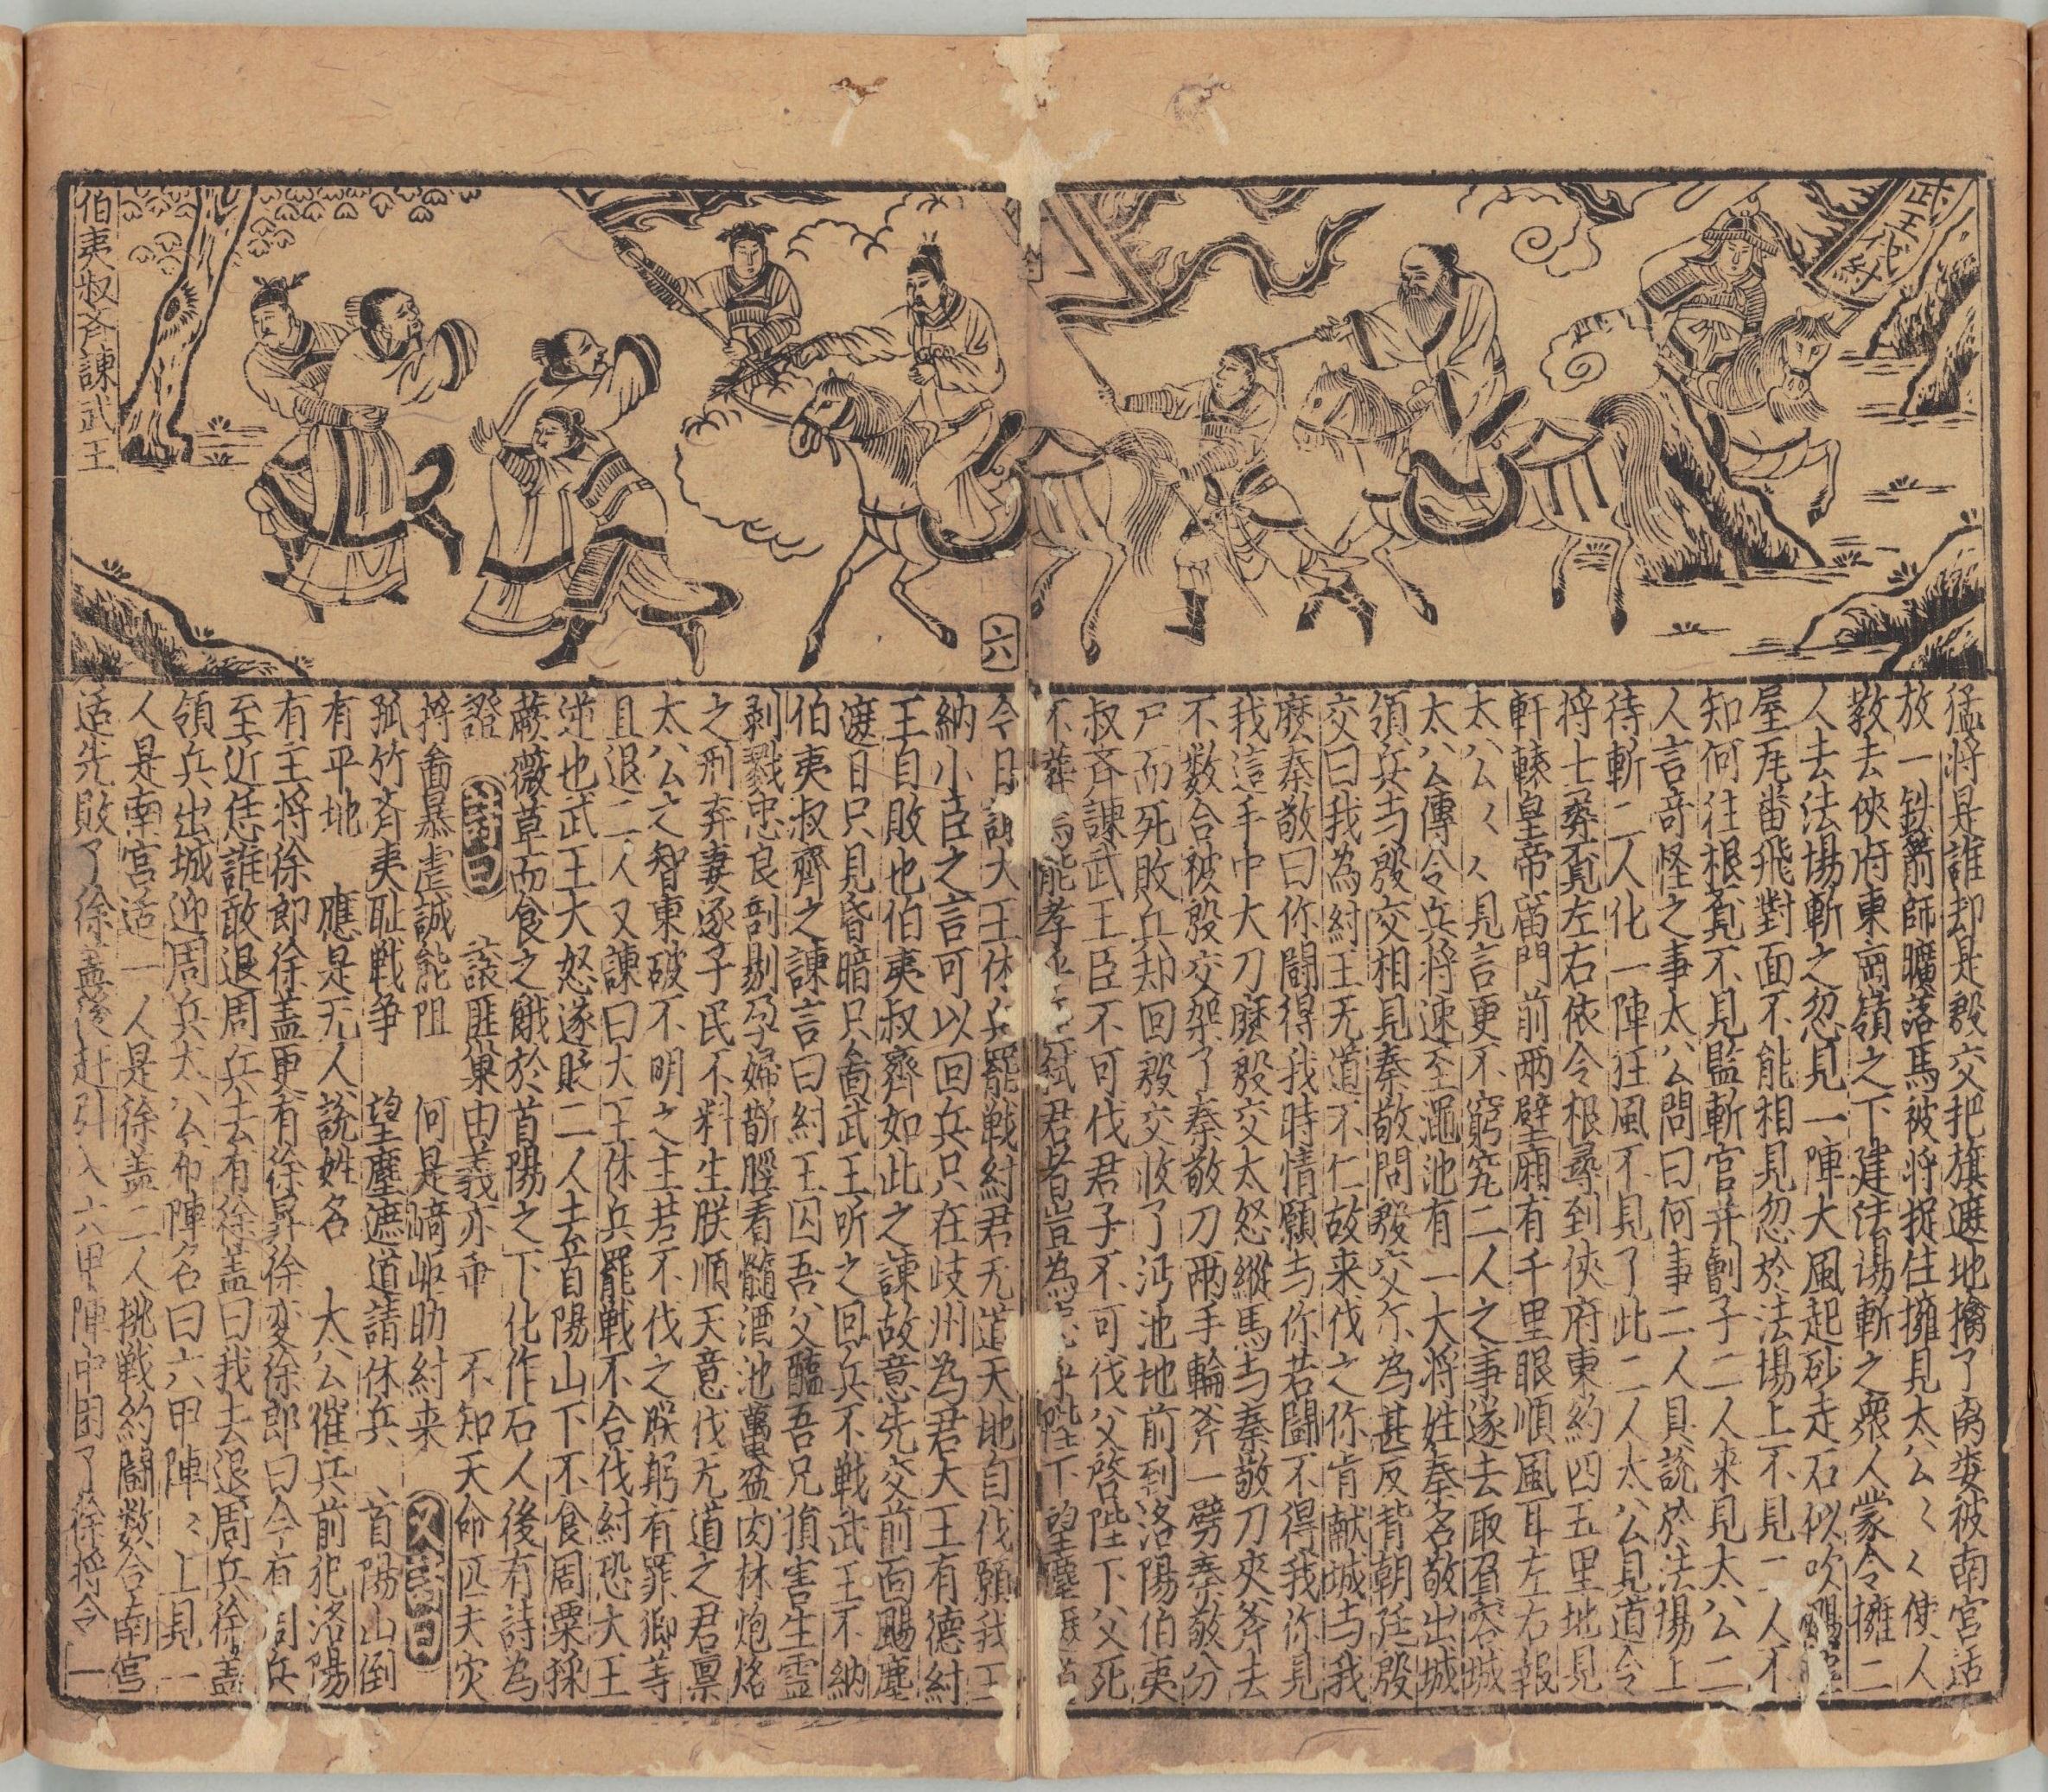 武王伐紂
伯夷叔斉諫武王
六
猛将是誰却是殷交把旗遮地擒了离娄被南宫适
放一鉄箭師曠落馬被将捉住擁見太公〻〻使人
教去侠府東崗嶺之下建法場斬之衆人蒙令擁二
人去法場斬之忽見一陣大風起砂走石似吹
屋瓦畨飛對面不能相見忽於法場上不見二人不
知何往根覔不見監斬官并劊子二人来見太公二
人言竒怪之事太公問曰何事二人具說於法場上
待斬二人化一陣狂風不見了此二人太公見道令
将士莽覔左右依令根尋到侠府東約四五里地見
軒轅皇帝庙門前两壁廂有千里眼順風耳左右報
太公〻〻見言更不窮究二人之事遂去取召容城
太公傳令兵将速至澠池有一大将姓秦名敬出城
領兵与殷交相見秦敬問殷交尔為甚反背朝廷殷
交曰我為紂王无道不仁故来伐之你肯献城与我
麽秦敬曰你闘得我時情願与你若闘不得我你見
我這手中大刀麽殷交太怒縱馬与秦敬刀夾斧去
不数合被殷交架了秦敬刀两手輪斧一劈秦敬分
尸而死敗兵却回殷交收了沔池地前到洛陽伯夷
叔斉諫武王臣不可伐君子不可伐父啓陛下父死
不葬焉能孝乎臣弑君者豈為忠乎陛下望塵遮道
今日諌大王休兵罷戦紂君无道天地自伐願我王
納小臣之言可以回兵只在岐州為君大王有德紂
王自敗也伯夷叔齊如此之諫故意先交前面颺塵
遮日只見昏暗只啚武王听之回兵不戦武王不納
伯夷叔齊之諫言曰紂王囚吾父醢吾兄損害生靈
剥戮忠良剖剔孕婦斮脛看髓酒池蠆盆肉林炮烙
之刑弃妻逐子民不料生朕順天意伐无道之君禀
太公之智東破不明之主若不伐之朕躬有罪卿等
且退二人又諫曰大王休兵罷戦不合伐紂恐大王
逆也武王大怒遂貶二人去首陽山下不食周粟採
蕨薇草而食之餓於首陽之下化作石人後有詩為
證 詩曰 讓匪巢由義亦希 不知天命匹夫灾
捋啚暴虐誠能阻 何是崎嶇助紂来 又詩曰
孤竹斉夷耻戦争 望塵遮道請休兵 首陽山倒
有平地 應是无人說姓名 太公催兵前犯洛陽
有主将徐郎徐盖更有徐昇徐変徐郎曰今有周兵
至近恁誰敢退周兵去有徐盖曰我去退周兵徐盖
領兵出城迎周兵太公布陣名曰六甲陣〻上見一
人是南宫适一人是徐盖二人挑戦約闘数合南宫
适先敗了徐盖後赶引入六甲陣中困了徐将令一